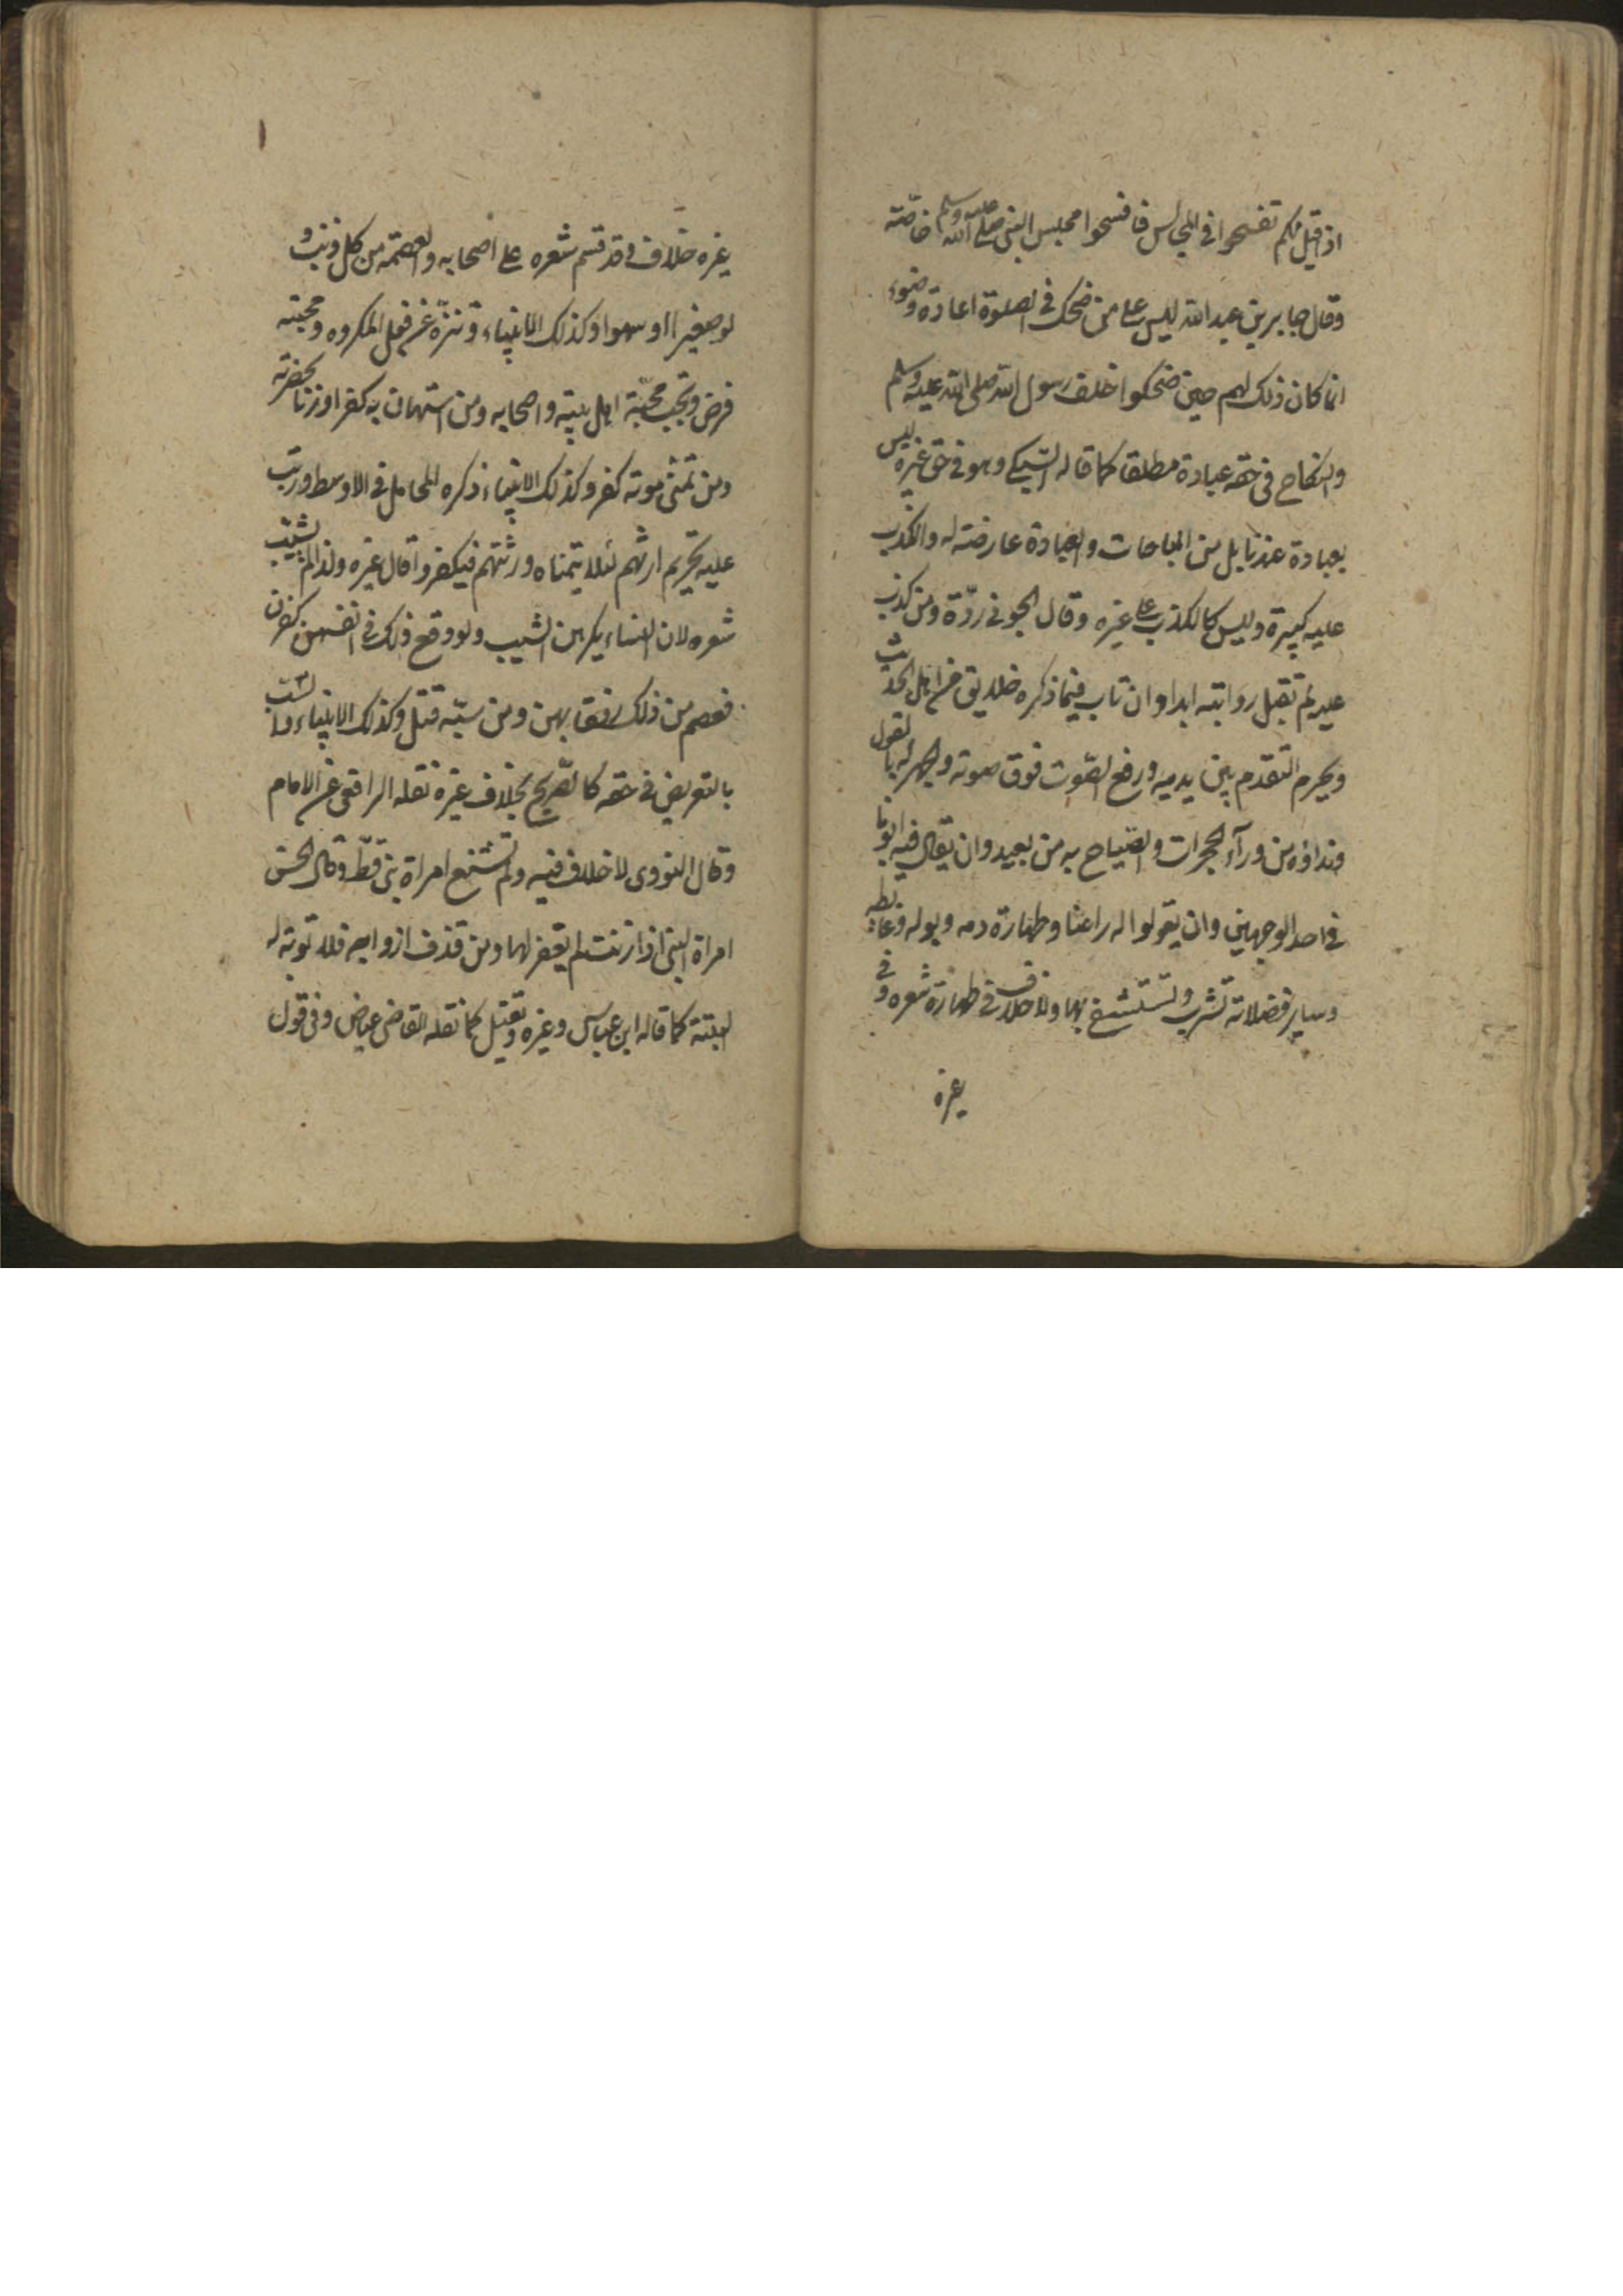 اذا قيل لكم تفسحوا في المجالس فافسحوا مجلس النبي صلى الله عليه وسلم خاصّته
وقال جابر بن عبد الله ليس على من ضحك في الصلوة اعادة وضوء
انما كان ذلك لهم حين ضحكوا خلف رسول الله صلى الله عليه وسلم
والنكاح في حقه عبادة مطلقا كما قاله السّبكي وهو في حق غيره ليس
بعبادة عندنا بل من المباحات والعبادة عارضة له والكذب
عليه كبيرة وليس كالكذب على غيره وقال الجويني ردّة ومن كذب
عليه لم تقبل روايته ابدا وان تاب فيما ذكره خلايق من اهل الحديث
ويحرم التقدم بين يديه ورفع الصّوت فوق صوته والجهر له بالقول
ونداؤه من ورآء الحجرات والصّياح به من بعيد وان يقال فيه ابونا
في احد الوجهين وان يقولوا له راعنا وطهارة دمه وبوله وغائطه
وساير فضلاته تشرب وتستشفع بها ولا خلاف في طهارة شعره وفي
غيره
غيره خلاف وقد قسم شعره على اصحابه والعصمة من كل ذنب و
لو صغيرا او سهوا وكذلك الانبياء وتنزّه عن فعل المكروه ومحبته
فرض وتجب محبّة اهل بيته واصحابه ومن استهان به كفر او زنا بحضرته
ومن تمنّى موته كفر وكذلك الانبياء ذكره المحاملي في الاوسط ورتب
عليه تحريم ارثهم لئلا يتمناه ورثتهم فيكفروا قال غيره ولذا لم يشيّب
شعره لان النساء يكرهن الشيب ولو وقع ذلك في انفسهن كفرن
فعصم من ذلك رفقا بهن ومن سبّه قتل وكذلك الانبياء والسّبّ
بالتعريض في حقه كالصّريح بخلاف غيره نقله الرافعي عن الامام
وقال النووي لا خلاف فيه ولم تبغ امراة نبي قطّ وقال الحسن
امراة النبي اذا زنت لم يغفر لها ومن قذف ازواجه فلا توبة له
البتة كما قاله ابن عباس وغيره ويقتل كما نقله القاضي عياض وفي قول